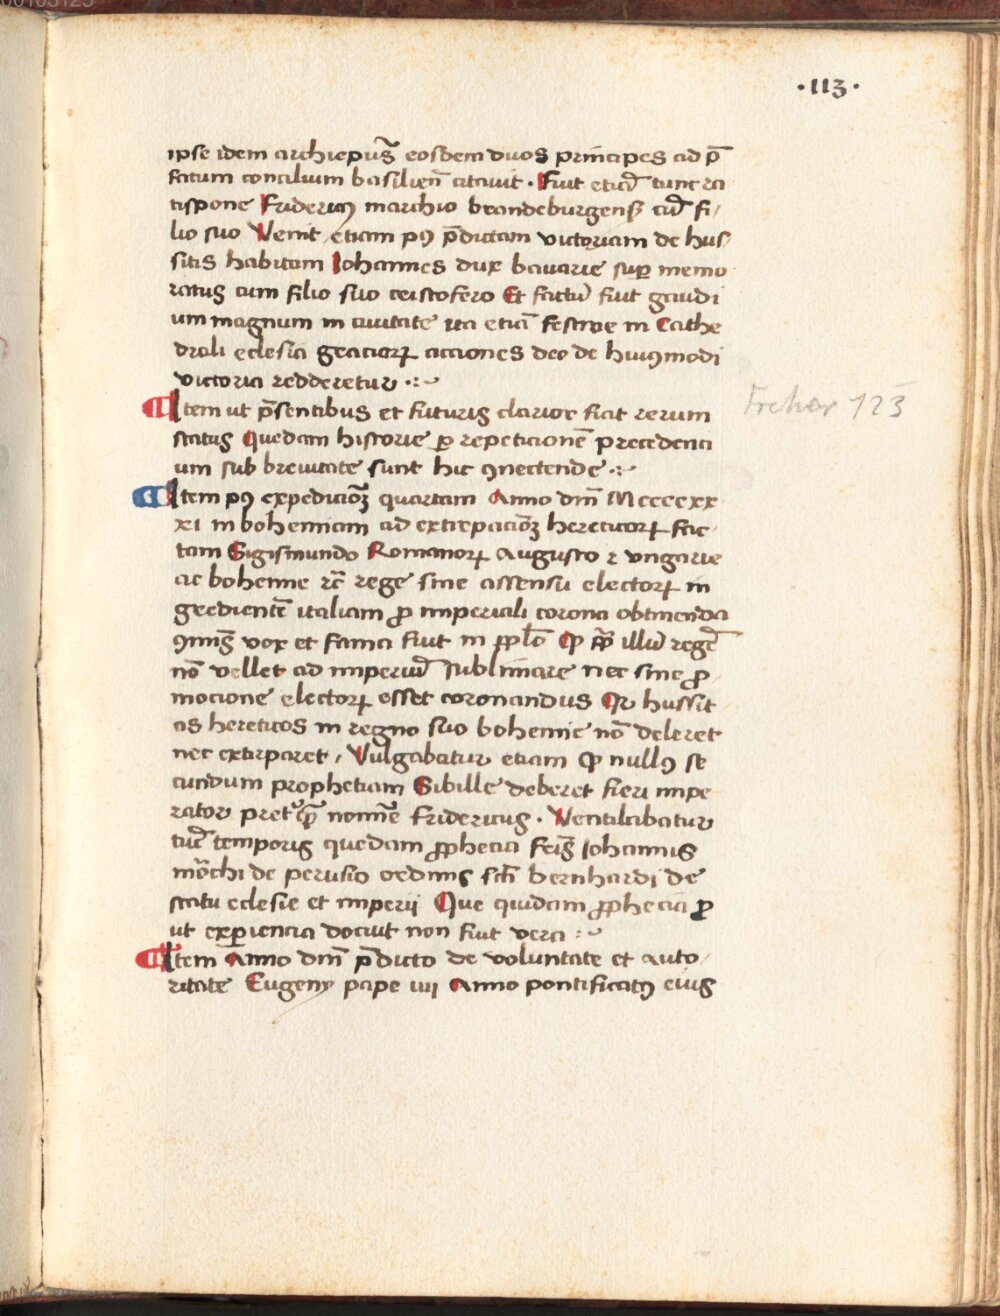 ·113·
ipse idem archiepus̃ eosdem duos principes ad p̄
fatum concilium basilien̄ citavit · Fuit eciā tunc ra
tispone Fridericꝰ marchio brandeburgenẜ cū fi/
lio suo Venit etiam pꝰ p̄dictam victoriam de hus/
sitis habitam Johannes dux bavarie suꝑ memo
ratus cum filio suo cristofero Et factū fuit gaudi
um magnum in civitate ita etiā festive in Cathe
drali eclesia graciarꝝ acciones deo de huiꝰmodi
victoria redderetur ·:~
¶ Item ut p̄sentibus et futuris clarior fiat rerum
status Quedam historie ꝑ repeticionē precedenci
um sub brevitate sunt hic ꝯnectende ·:~
Frehar 123
¶ Item pꝰ expediciōꝫ quartam Anno dm̄ Mccccxx
xi in bohemiam ad extirpaciōꝫ hereticorꝝ fac/
tam Sigismundo Romanorꝝ Augusto ⁊ ungarie
ac bohemie rc̄ rege sine assensu electorꝝ in
gredientē italiam ꝓ imperiali corona obtinenda
ꝯmūs vox et fama fuit in pplo Qꝫ pp̄ illū regē
nō vellet ad imperiū sublimare nec sine ꝓ/
mocione electorꝝ esset coronandus Qr hussit/
as hereticos in regno suo bohemie nō deleret
nec extirparet / Vulgabatur etiam Qꝫ nullꝰ se
cundum prophetiam Sibille deberet fieri impe
rator pret̾ qm̄ nomīe Fridericus · Ventilabatur
tūc temporis quedam ꝓphecia fr̄is Johannis
mōchi de perusio ordinis sc̄i bernhardi de
statu eclesie et imperii Que quidam ꝓphecia ꝓ
ut experiencia docuit non fuit vera :~
¶ Item Anno dm̄ p̄dicto de voluntate et auto/
ritate Eugeny pape iiii Anno pontificatꝰ eius